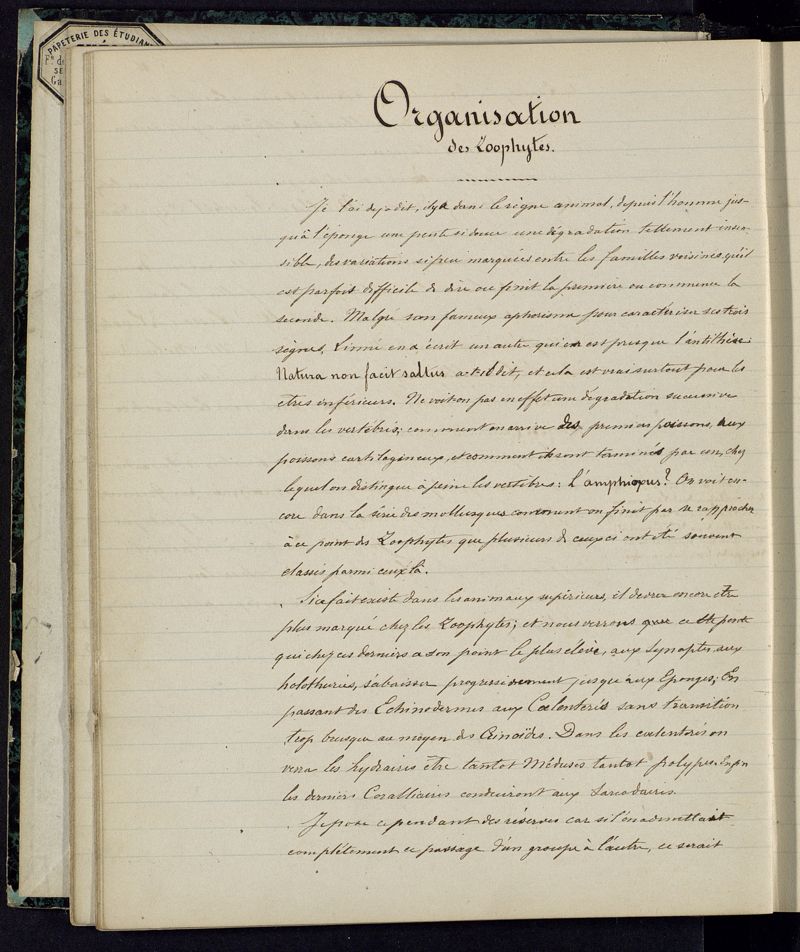 PAPETERIE DES ÉTUDIANT
Organisation
des Zoophytes.
Je l'ai deja dit, il y a dans le règne animal, depuis l'homme jus-
qu'à l'éponge une pente si douce une dégradation tellement insen-
sible, des variations si peu marquées entre les familles voisines, qu'il
est parfois difficile de dire ou finit la premiere ou commence la
seconde. Malgré son fameux aphorisme pour caractériser ses trois
règnes, Linné en a écrit un autre qui en est presque l'antithèse:
Natura non facit saltus a-t-il dit, et cela est vrai surtout pour les
etres inférieurs. Ne voit on pas en effet une dégradation successive
dans les vertébrés; comment on arrive des premiers poissons, aux
poissons cartilagineux, et comment ils sont terminés par un, chez
lequel on distingue à peine les vertèbres: l'amphioxus? On voit en-
core dans la série des mollusques comment on finit par se rapprocher
à ce point des Zoophytes que plusieurs de ceux ci ont été souvent
classés parmi ceux là.
Si ce fait existe dans les animaux supérieurs, il devra encore être
plus marqué chez les Zoophytes; et nous verrons que cette pente
qui chez ces derniers a son point le plus élevé, aux Synaptes, aux
holothuries, s'abaisse progressivement jusque aux Eponges; En
passant des Echinodermes aux Cœlentérés sans transition
trop brusque au moyen des Crinoïdes. Dans les cœlentérés on
verra les hydraires être tantot Méduses tantot polypes. Enfin
les derniers Coralliaires conduiront aux Sarcodaires.
Je pose cependant des réserves car si l'on admettait
complétement ce passage d'un groupe à l'autre, ce serait